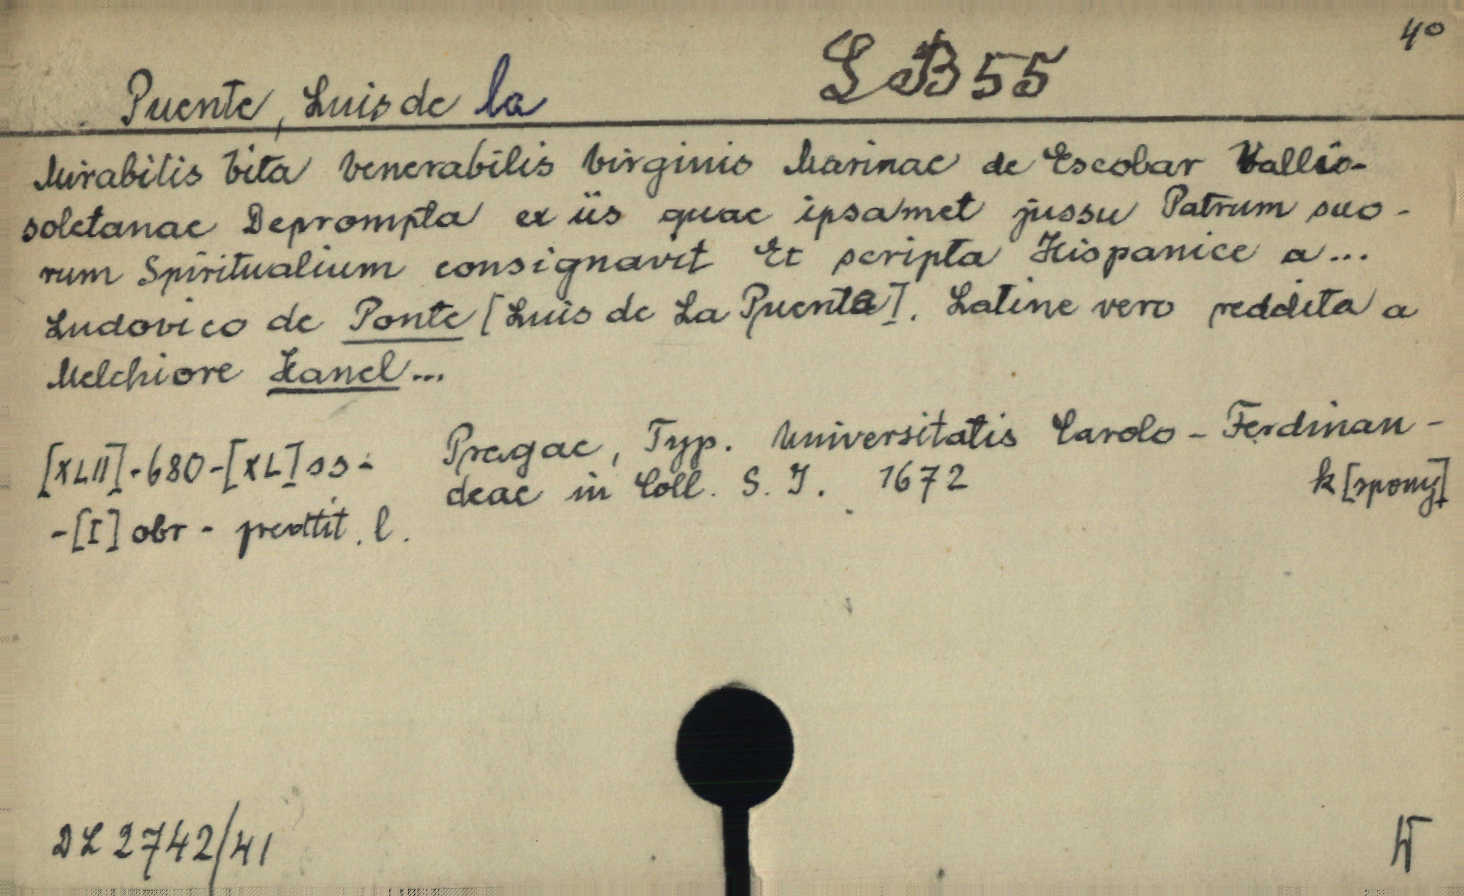 40
LB 55
Puente, Luis de la
Mirabilis Vita Venerabilis Virginis Marinae de Escobar Vallis-
soletanae Deprompta ex iis quae ipsamet jussu Patrum suo-
rum Spiritualium consignavit Et scripta Hispanice a...
Ludovico de Ponte [Luis de La Puente]. Latine vero reddita a
Melchiore Hanel...
Pragae, Typ. Universitatis Carolo-Ferdinan-
deae in Coll. S. J. 1672 k[spony]
[XLII]-680-[XL] ss-
-[I] obr - predtit. l.
DL 2742/41